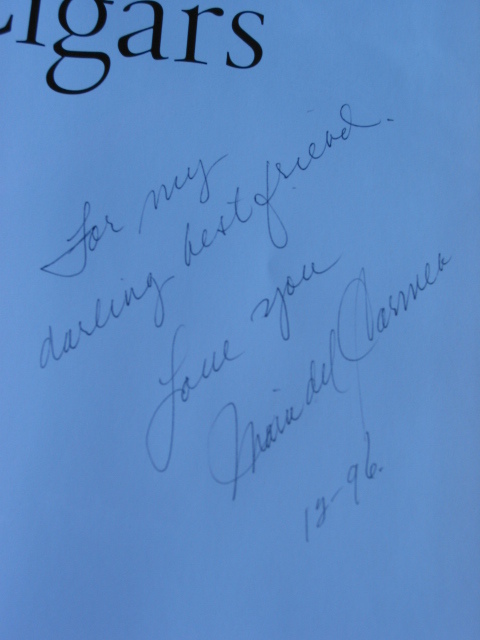 Cigars
For my
darling best friend.
Love you
Maria del Carmen
12-96.